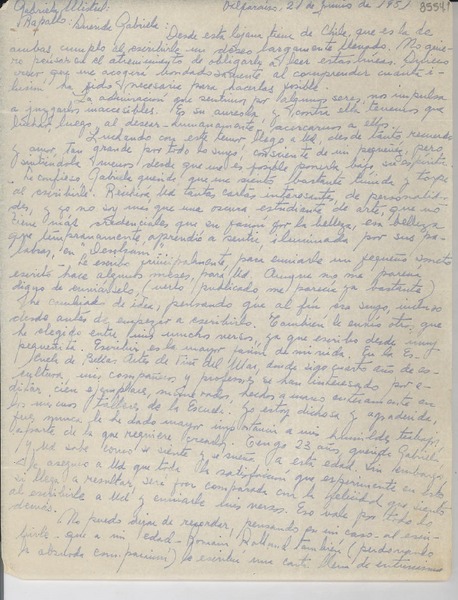 Gabriela Mistral. Valparaíso, 21 de junio de 1951 8554
Rapallo. Querida Gabriela: Desde esta lejana tierra de Chile, que es la de
ambas cumplo el escribirle un deseo largamente No quie-
ro pensar en el atrevimiento de obligarla a leer estas líneas. Quiero
creer que me acogerá bondadosamente al comprender cuánta
ha sido necesaria para hacerlas posible.
La admiración que sentimos por algunos seres, nos impulsa
a juzgarlos inaccesibles. Es su aureola contra ella tenemos que
luchar luego, al desear humanamente acercarnos a ellos.
Luchando con este temor, llego a Ud., desde tanto recuerdo
y amor, tan grande por todo lo suyo, consciente de mi pequeñez, pero
sintiéndola menos desde que me es posible ponerla bajo su espíritu.
Le confieso, Gabriela querida, que me siento bastante tímida y torpe
al escribirle. Recibirá Ud. tantas cartas interesantes, de personalida-
des, y yo no soy más que una oscura estudiante de arte, que no
tiene más credenciales que su fervor por la belleza, esa belleza
que tempranamente aprendió a sentir iluminada por sus pa-
labras, en "Desolación".
Le escribo principalmente para enviarle un pequeño soneto
escrito hace algunos meses, para Ud. Aunque no me parecía
digno de enviárselo, (verlo publicado me parecía ya bastante)
he cambiado de idea, pensando que al fin era suyo, incluso
desde antes de empezar a escribirlo. También le envío otro, que
he elegido entre mis muchos versos, ya que escribo desde muy
pequeñita. Escribir es la mayor pasión de mi vida. En la Es-
cuela de Bellas Artes de Viña del Mar, donde sigo cuarto año de es-
cultura, mis compañeros y profesores se han interesado por e-
ditar cien ejemplares, numerados, hechos a mano enteramente en
los mismos talleres de la Escuela. Yo estoy dichosa y agradecida,
pues nunca le he dado mayor importancia a mi humilde trabajo,
aparte de la que requiere crearlo. Tengo 23 años, querida Gabriela
y Ud. sabe cómo se siente y se sueña a esta edad. Sin embargo,
le aseguro a Ud. que toda la satisfacción que experimente en esto
si llega a resultar, será poca comparada con la felicidad que siento
al escribirle a Ud. y enviarle mis versos. Eso vale por todo lo
demás.
No puedo dejar de recordar, pensando en mi caso al escri-
birle - que a mi edad Romain Rolland también (perdonando
la absurda comparación) le escribía una carta llena de entusiasmo